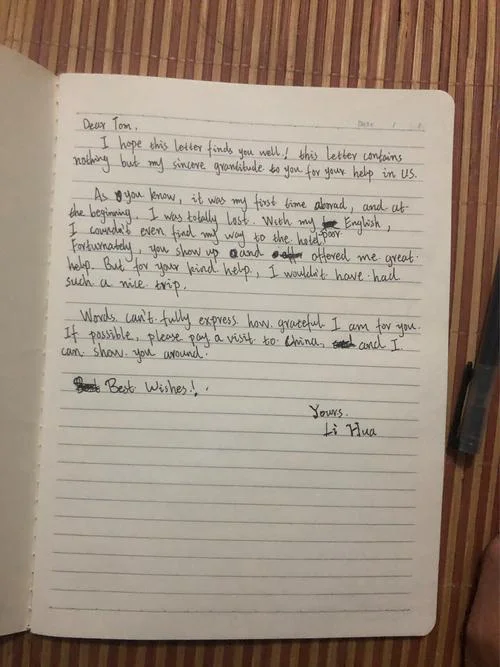 Date / .
Dear Tom,
I hope this letter finds you well! this letter contains
nothing but my sincere grantitude to you for your help in US.
As you know, it was my first time abroad, and at
the beginning, I was totally lost. With my poor English,
I coundn't even find my way to the hotel.
Fortunately, you show up and offered me great
help. But for your kind help, I wouldn't have had
such a nice trip.
Words can't fully express how grateful I am for you.
If possible, please pay a visit to China, and I
can show you around.
Best Wishes!
Yours,
Li Hua